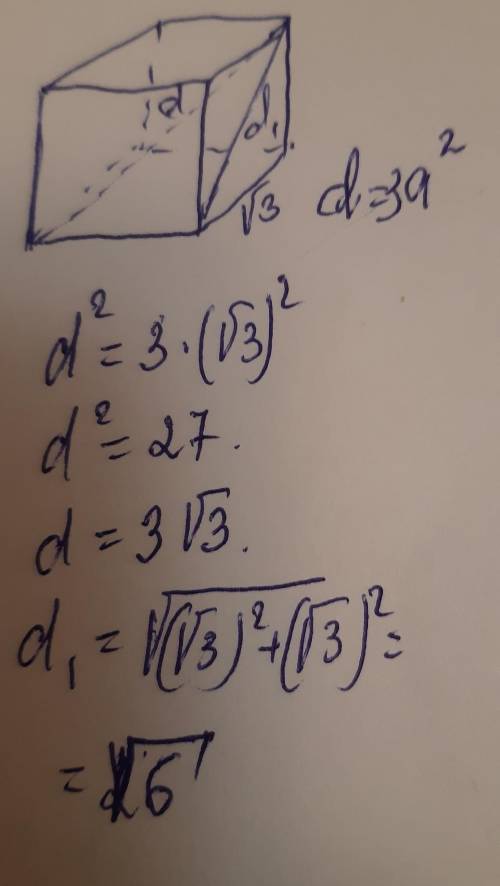 d
d₁
√3
d=3a²
d² = 3·(√3)²
d² = 27.
d = 3√3.
d₁ = √(√3)²+(√3)² =
= √6